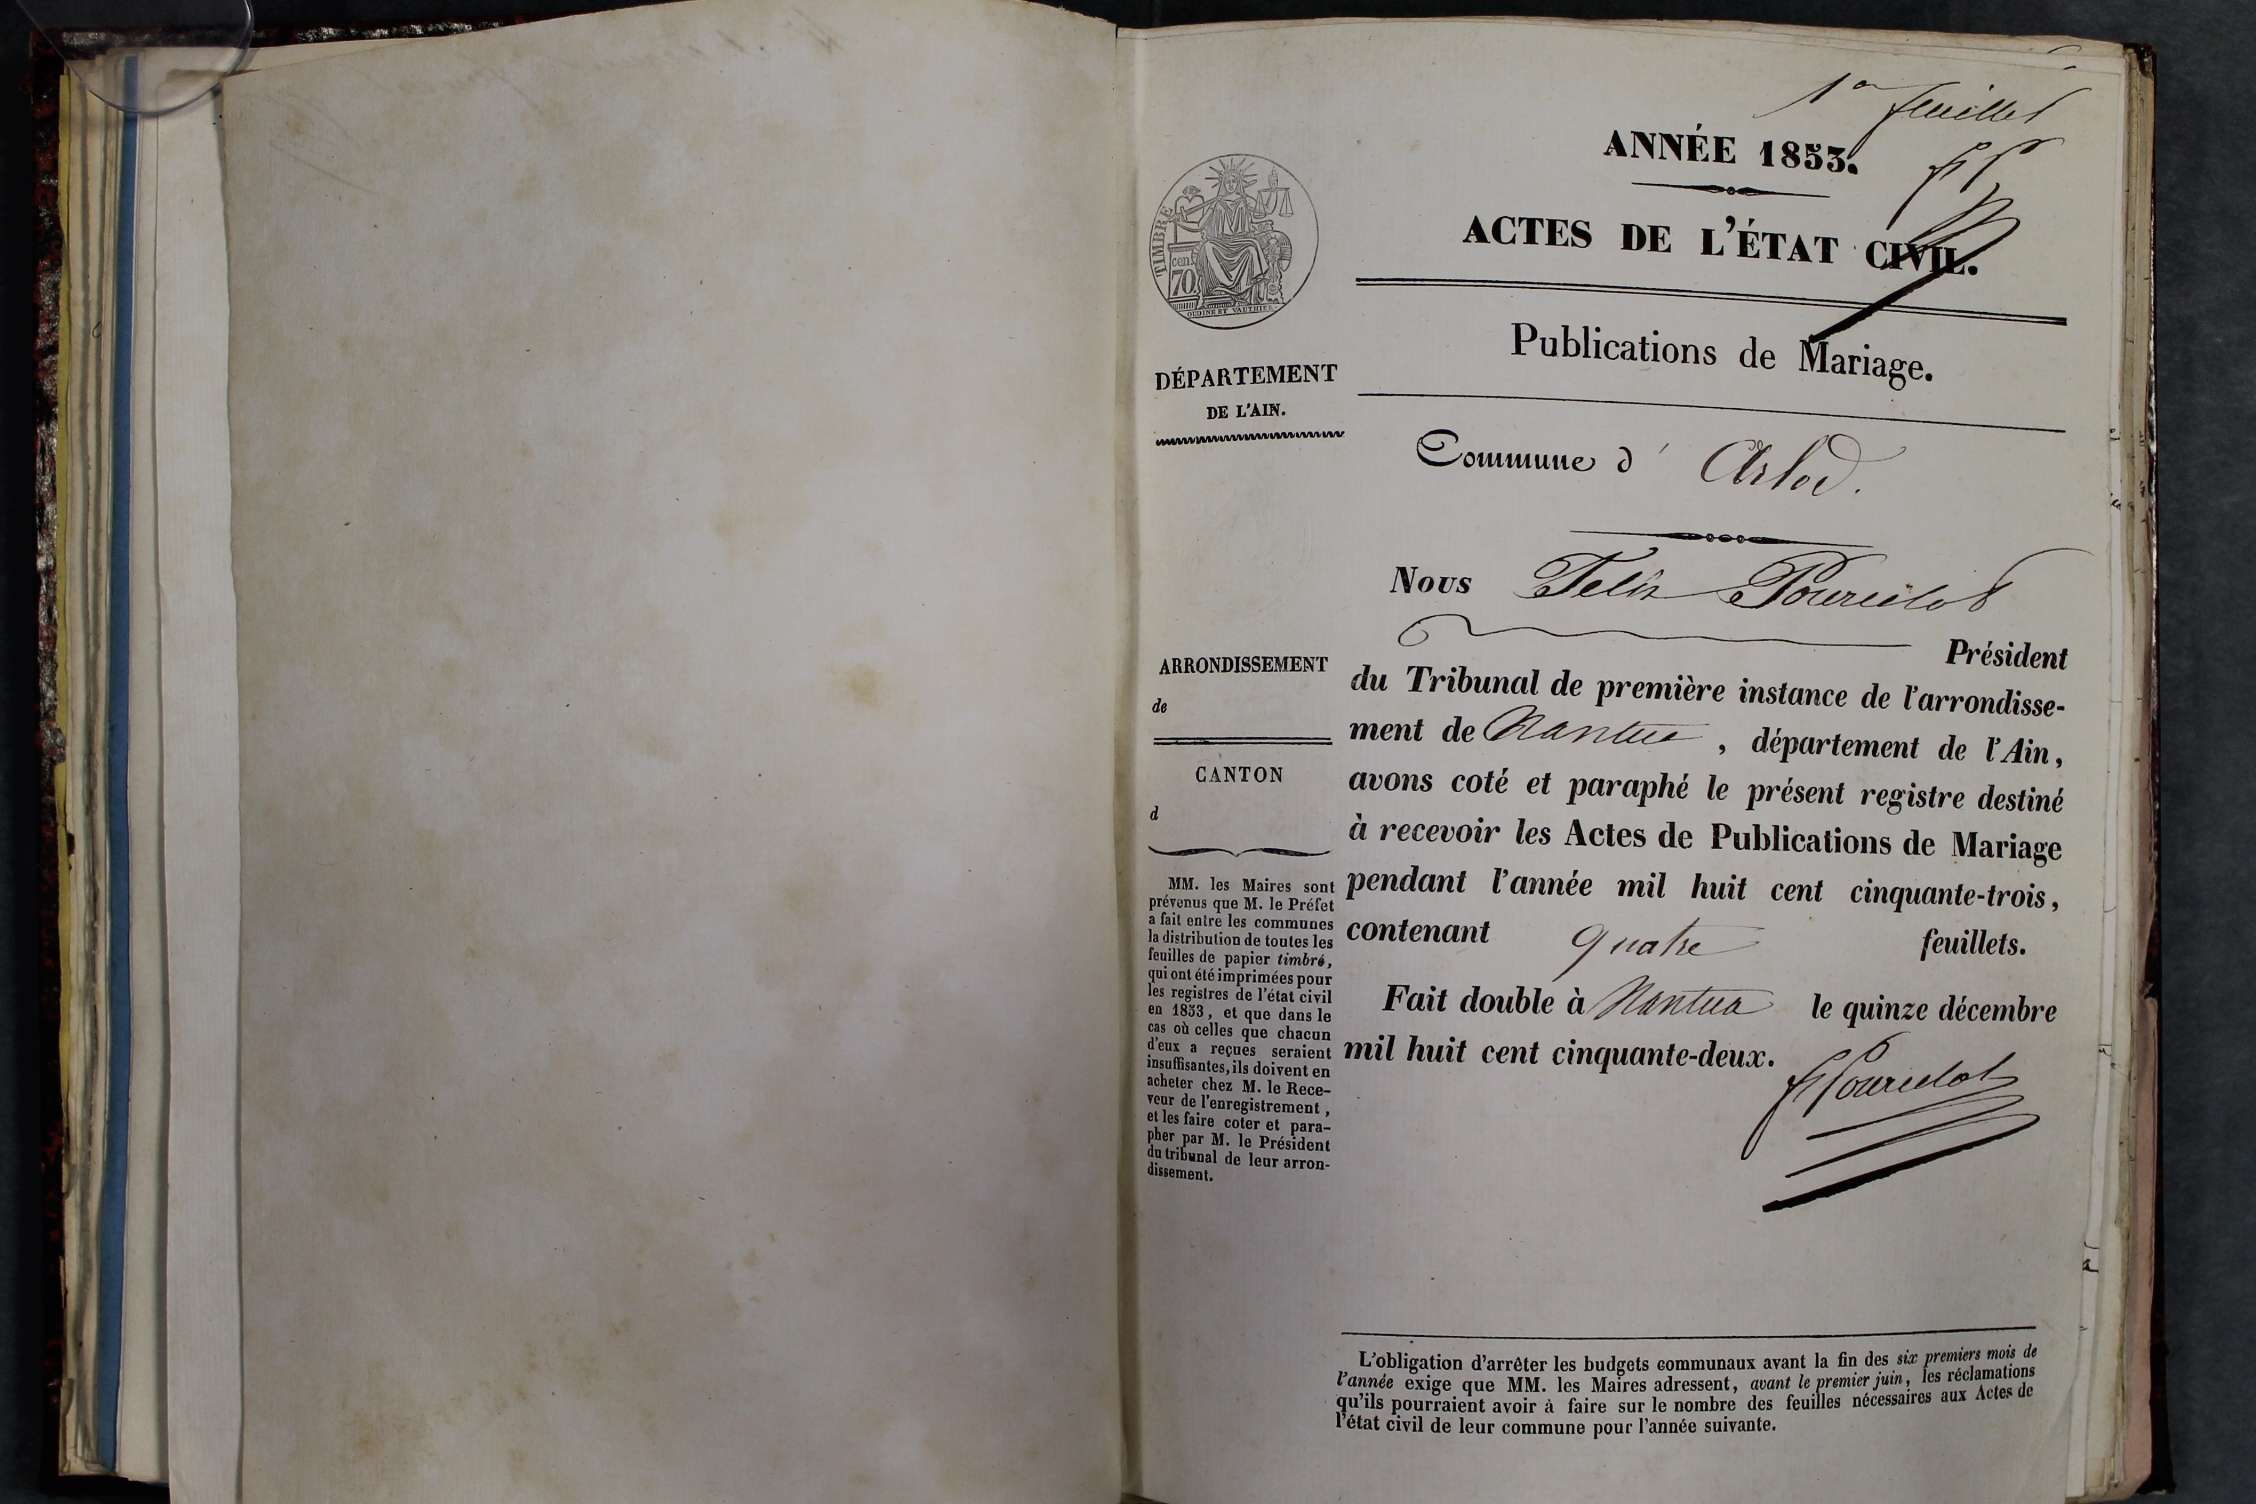 1er feuillet
ANNÉE 1853.
ACTES DE L'ÉTAT CIVIL.
Publications de Mariage.
TIMBRE
cent
70
OUDINE ET VAUTHIER
DÉPARTEMENT
DE L'AIN.
Commune d' Arlod.
Nous Felix Pourcelot
Président
du Tribunal de première instance de l'arrondisse-
ment de Nantua, département de l'Ain,
avons coté et paraphé le présent registre destiné
à recevoir les Actes de Publications de Mariage
pendant l'année mil huit cent cinquante-trois,
contenant quatre feuillets.
Fait double à Nantua le quinze décembre
mil huit cent cinquante-deux.
F Pourcelot
ARRONDISSEMENT
de
CANTON
d
MM. les Maires sont
prévenus que M. le Préfet
a fait entre les communes
la distribution de toutes les
feuilles de papier timbré,
qui ont été imprimées pour
les registres de l'état civil
en 1853, et que dans le
cas où celles que chacun
d'eux a reçues seraient
insuffisantes, ils doivent en
acheter chez M. le Rece-
veur de l'enregistrement,
et les faire coter et para-
pher par M. le Président
du tribunal de leur arron-
dissement.
L'obligation d'arrêter les budgets communaux avant la fin des six premiers mois de
l'année exige que MM. les Maires adressent, avant le premier juin, les réclamations
qu'ils pourraient avoir à faire sur le nombre des feuilles nécessaires aux Actes de
l'état civil de leur commune pour l'année suivante.